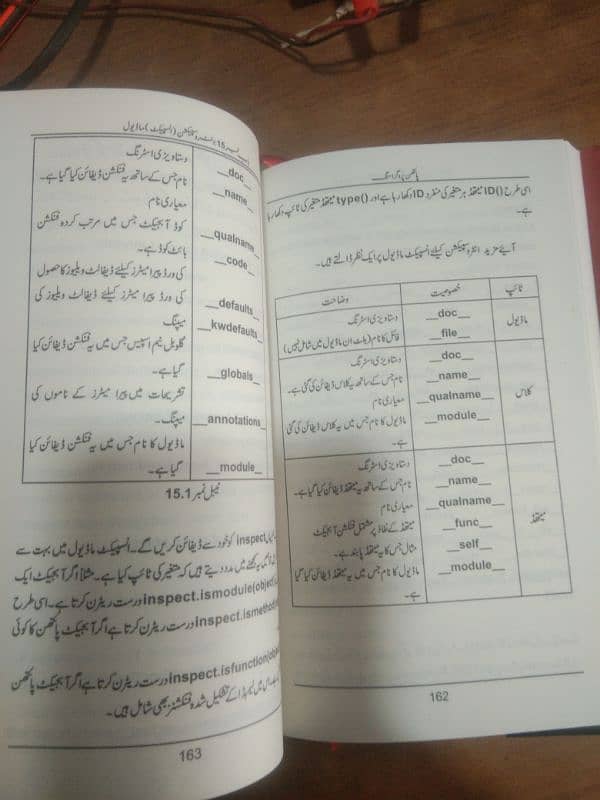 پائتھن پروگرامنگ
اسی طرح ID() میتھڈ ہر متغیر کی منفرد ID دکھا رہا ہے اور type() میتھڈ متغیر کی ٹائپ دکھا رہا
ہے۔
آیئے مزید انٹروسپیکشن کیلئے انسپیکٹ ماڈیول پر ایک نظر ڈالتے ہیں۔
ٹائپ خصوصیت وضاحت
ماڈیول __doc__ دستاویزی اسٹرنگ
__file__ فائل کا نام (بلٹ ان ماڈیول میں شامل نہیں)
کلاس __doc__ دستاویزی اسٹرنگ
__name__ نام جس کے ساتھ یہ کلاس ڈیفائن کی گئی ہے۔
__qualname__ معیاری نام
__module__ ماڈیول کا نام جس میں یہ کلاس ڈیفائن کی گئی
ہے۔
میتھڈ __doc__ دستاویزی اسٹرنگ
__name__ نام جس کے ساتھ یہ میتھڈ ڈیفائن کیا گیا ہے۔
__qualname__ معیاری نام
__func__ میتھڈ کے نفاذ پر مشتمل فنکشن آبجیکٹ
__self__ مثال جس کا یہ میتھڈ پابند ہے۔
__module__ ماڈیول کا نام جس میں یہ میتھڈ ڈیفائن کیا گیا
ہے۔
162
15 (انسپیکٹ) ماڈیول
__doc__ دستاویزی اسٹرنگ
__name__ نام جس کے ساتھ یہ فنکشن ڈیفائن کیا گیا ہے۔
__qualname__ معیاری نام
__code__ کوڈ آبجیکٹ جس میں مرتب کردہ فنکشن
بائٹ کوڈ ہے۔
__defaults__ کی ورڈ پیرامیٹرز کیلئے ڈیفالٹ ویلیوز کا حصول
__kwdefaults__ کی ورڈ پیرامیٹرز کیلئے ڈیفالٹ ویلیوز کی
میپنگ
__globals__ گلوبل نیم اسپیس جس میں یہ فنکشن ڈیفائن کیا
گیا ہے۔
__annotations__ تشریحات میں پیرامیٹرز کے ناموں کی
میپنگ۔
__module__ ماڈیول کا نام جس میں یہ فنکشن ڈیفائن کیا
گیا ہے۔
ٹیبل نمبر 15.1
inspect کو خود سے ڈیفائن کریں گے۔ انسپیکٹ ماڈیول میں بہت سے
یہ دیکھنے میں مدد دیتے ہیں کہ متغیر کی ٹائپ کیا ہے۔ مثلاً اگر آبجیکٹ ایک
inspect.ismodule(object درست ریٹرن کرتا ہے۔ اسی طرح
inspect.ismethod درست ریٹرن کرتا ہے اگر آبجیکٹ پائتھن کا کوئی
inspect.isfunction(obj درست ریٹرن کرتا ہے اگر آبجیکٹ پائتھن
اس میں لیمبڈا کے تشکیل شدہ فنکشنز بھی شامل ہیں۔
163